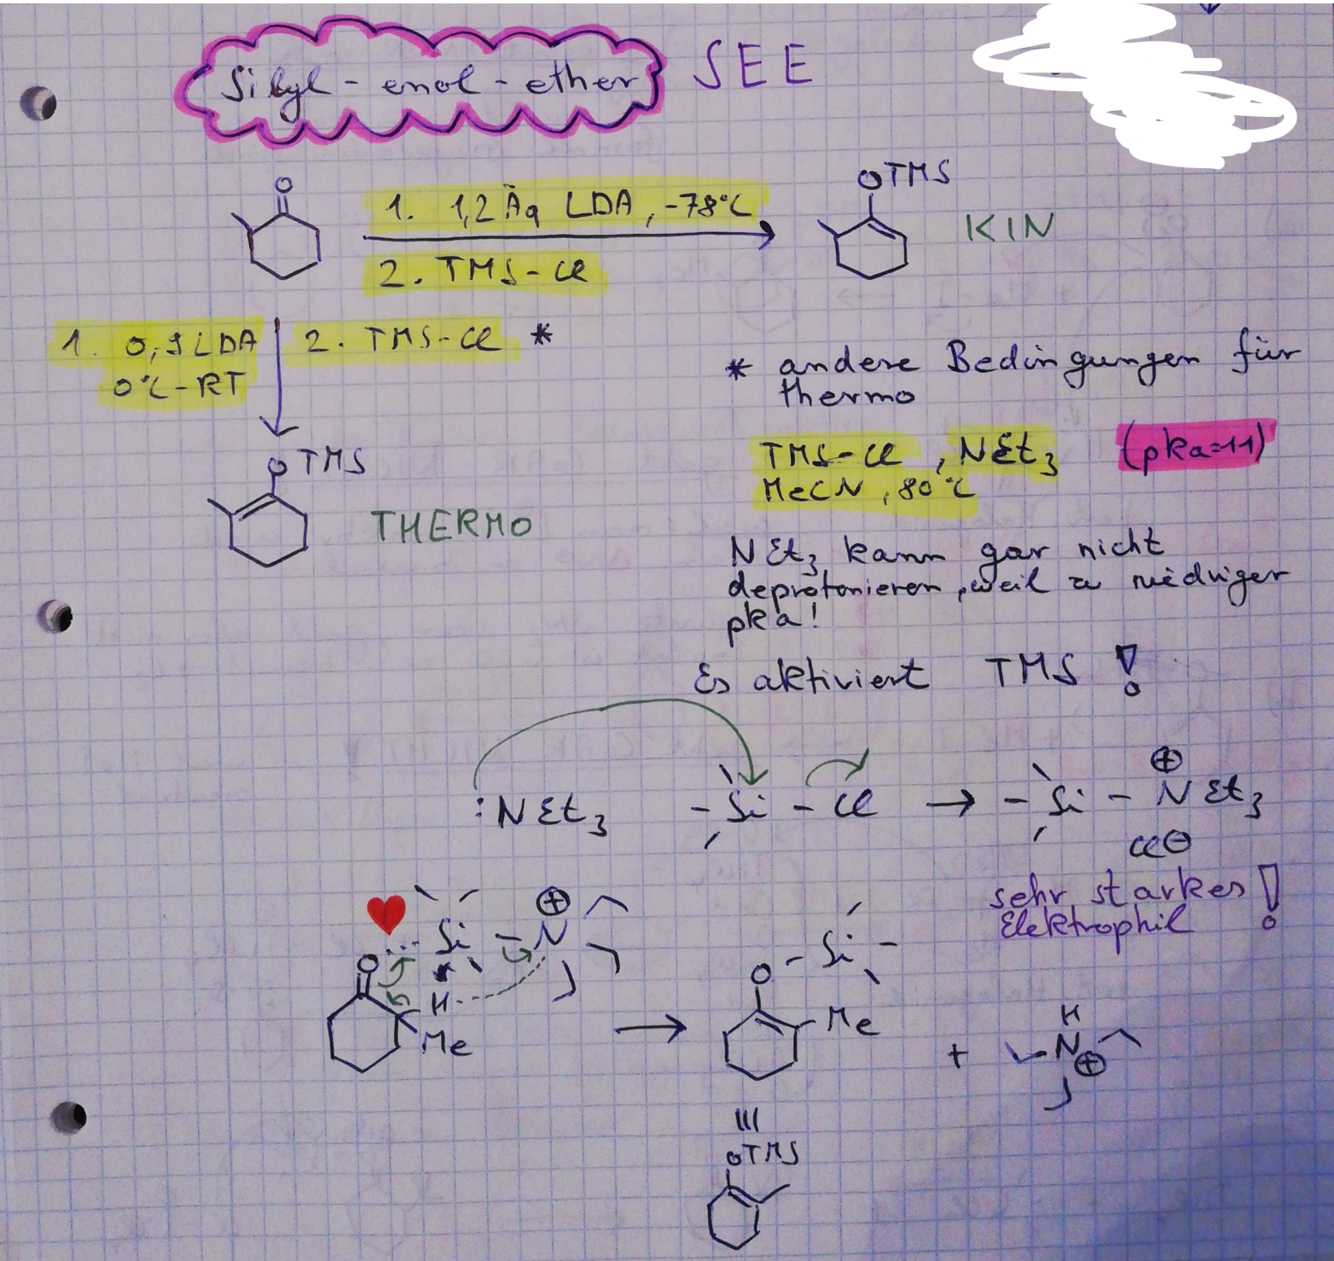 Silyl-enol-ether SEE
O
1. 1,2 Äq LDA, -78°C
2. TMS-Cl
OTMS
KIN
1. 0,9 LDA
0°C-RT
2. TMS-Cl *
* andere Bedingungen für
thermo
OTMS
THERMO
TMS-Cl, NEt3 (pka=11)
MeCN, 80°C
NEt3 kann gar nicht
deprotonieren, weil zu niedriger
pka!
Es aktiviert TMS !
:NEt3 -Si-Cl → -Si-NEt3
⊕
Cl⊖
sehr starkes !
Elektrophil
Si-N
⊕
O
H
Me
→
O-Si-
Me
+
H
N
⊕
OTMS